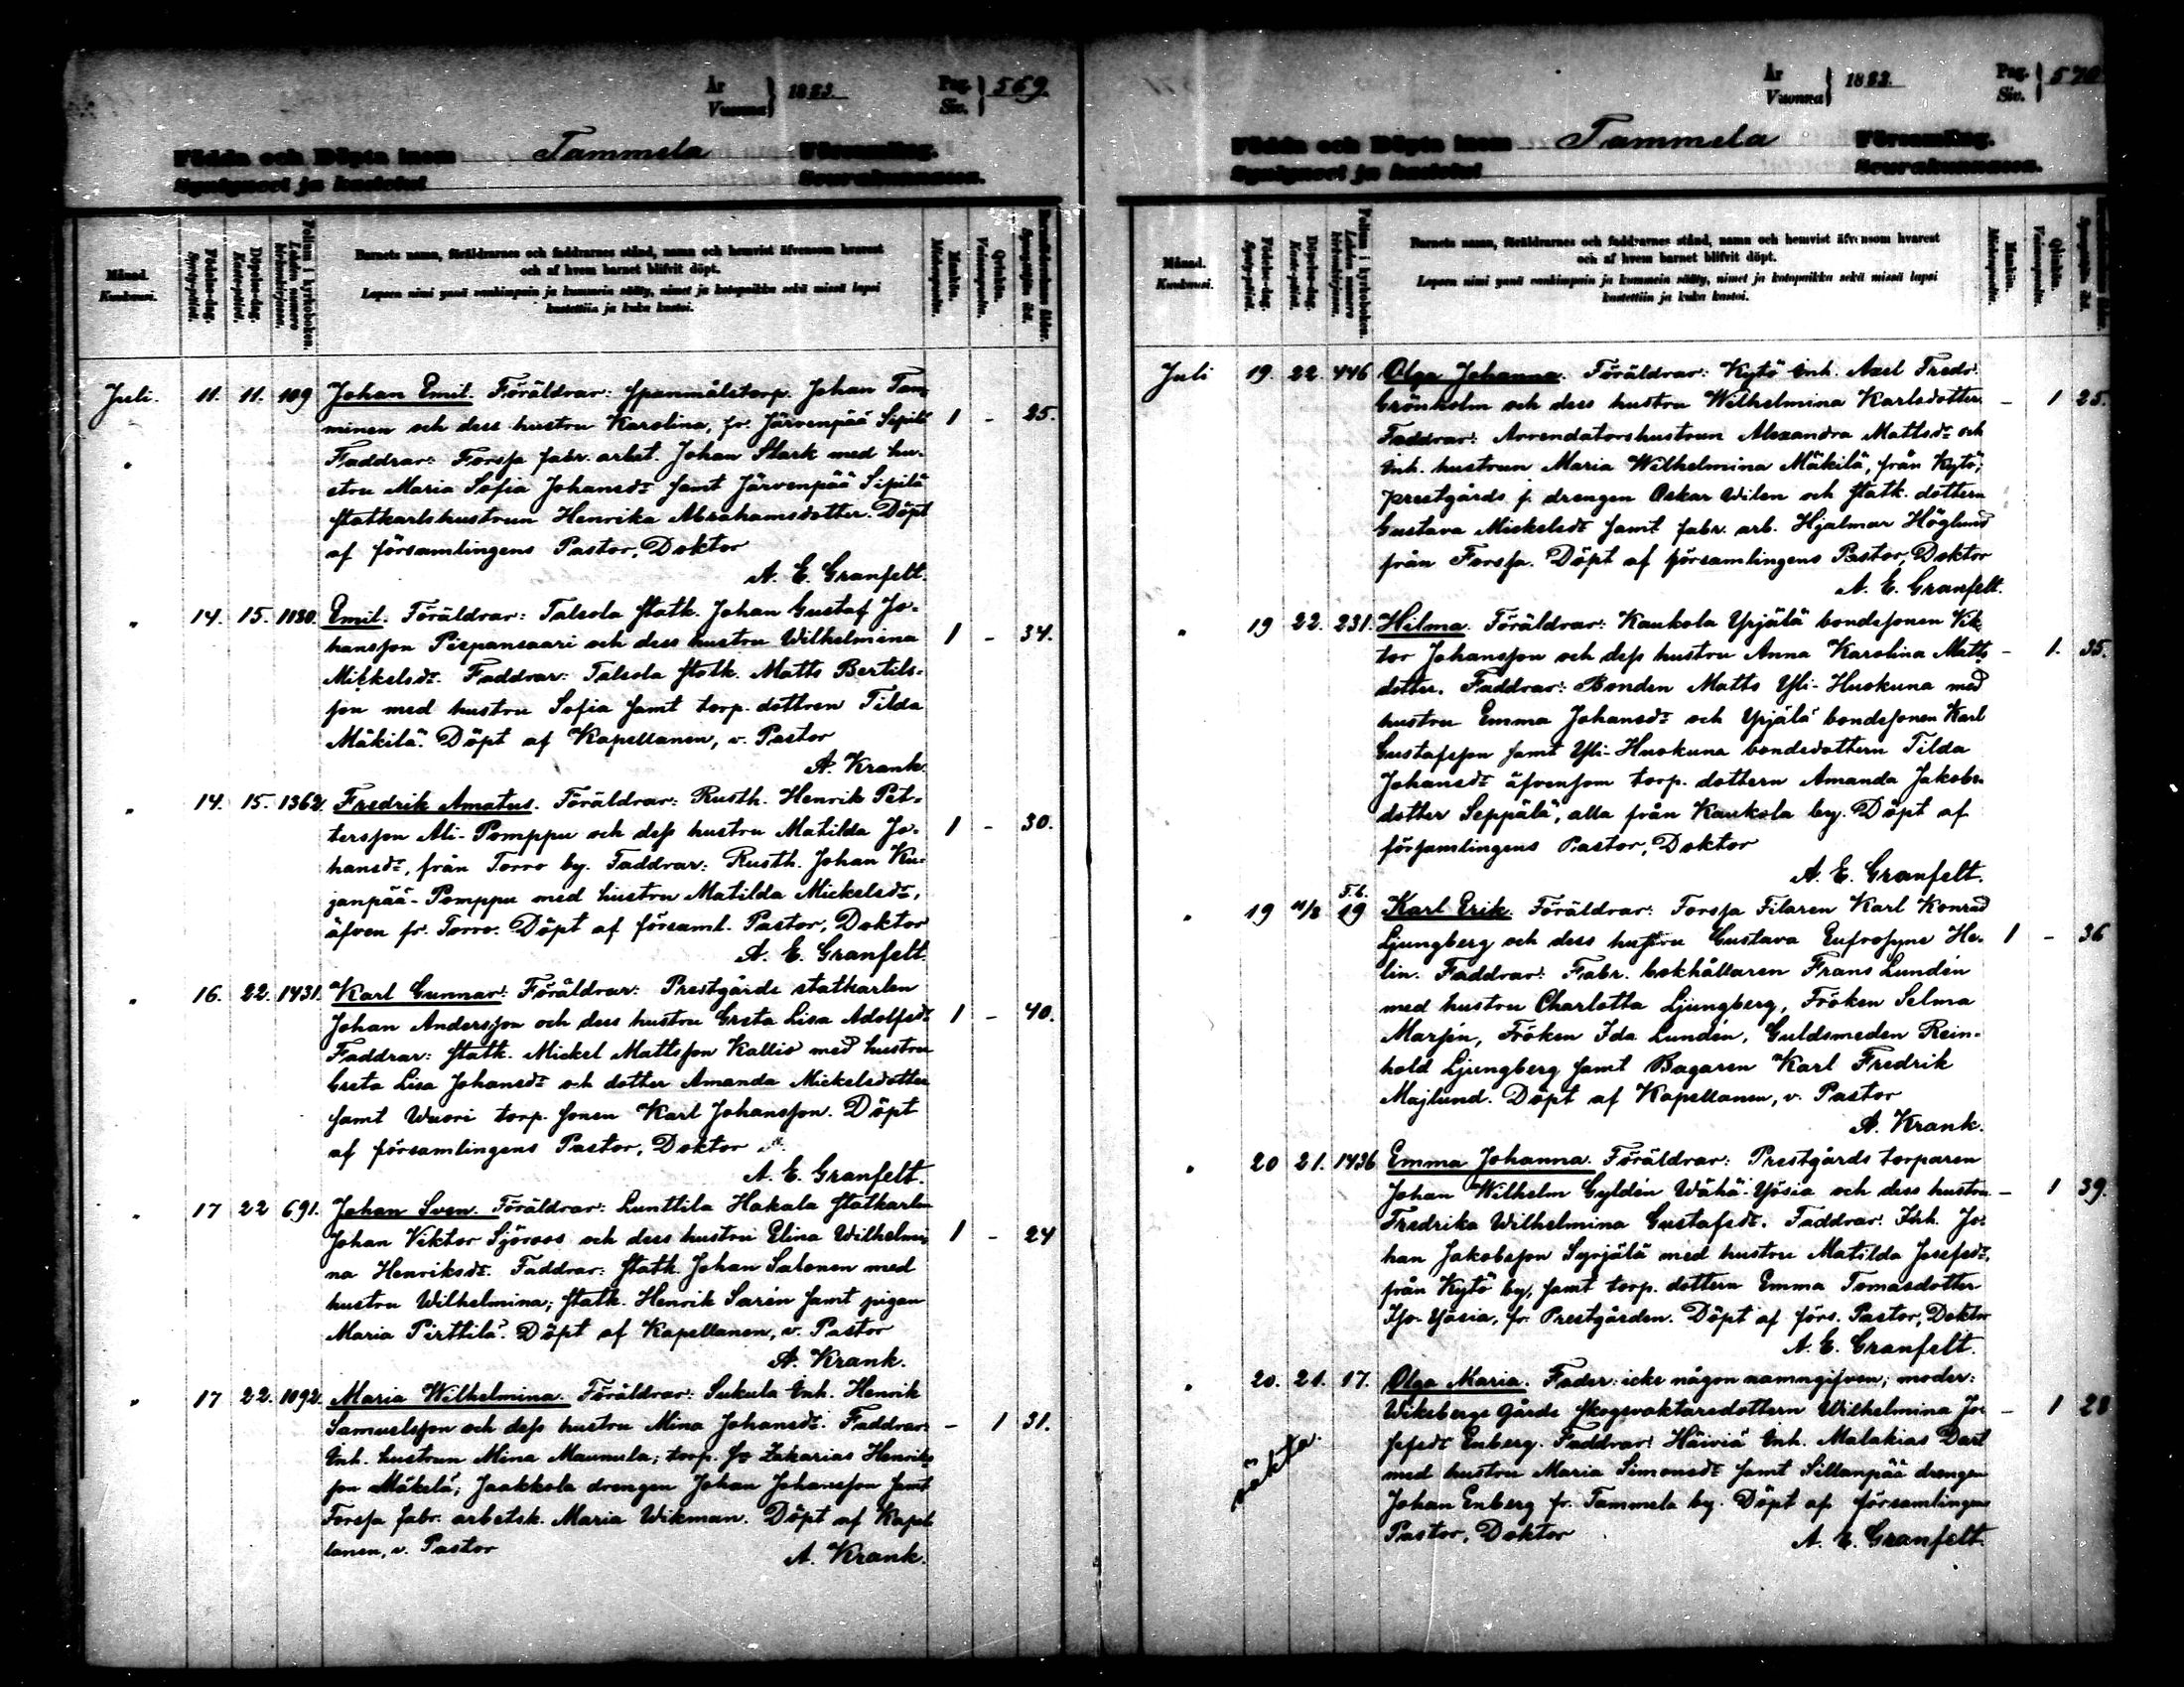 År
Vuonna } 1883.
Pag.
Siv. } 569.
Födda och Döpta inom Tammela Församling.
Syntyneet ja kastetut Seurakunnassa.
Månad.
Kuukausi.
Födelse-dag.
Synty-päivä.
Döpelse-dag.
Kaste-päivä.
Folium i kyrkoboken.
Lehden numero kirkonkirjassa.
Barnets namn, föräldrarnes och faddrarnes stånd, namn och hemvist äfvensom hvarest
och af hvem barnet blifvit döpt.
Lapsen nimi ynnä vanhimpain ja kummein sääty, nimet ja kotopaikka sekä missä lapsi
kastettiin ja kuka kastoi.
Mankön.
Miehenpuolta.
Qvinkön.
Vaimonpuolta.
Juli. 11. 11. 109 Johan Emil. Föräldrar: spanmålstorp. Johan Tam-
minen och dess hustru Karolina, fr. Järvenpää Sipilä 1 - 25.
Faddrar: Forssa fabr. arbet. Johan Stark med hu-
stru Maria Sofia Johansdr samt Järvenpää Sipilä
statkarlshustrun Henrika Abrahamsdotter. Döpt
af församlingens Pastor, Doktor
A. E. Granfelt.
" 14. 15. 1180. Emil. Föräldrar: Talsola statk. Johan Gustaf Jo-
hansson Piepansaari och dess hustru Wilhelmina 1 - 34.
Mickelsdr. Faddrar: Talsola statk. Matts Bertils-
son med hustru Sofia samt torp. dottren Tilda
Mäkilä. Döpt af Kapellanen, v. Pastor
A. Krank.
" 14. 15. 1362. Fredrik Amatus. Föräldrar: Rusth. Henrik Pet-
tersson Ali-Pomppu och dess hustru Matilda Jo- 1 - 30.
hansdr, från Torro by. Faddrar: Rusth. Johan Ku-
janpää-Pomppu med hustru Matilda Mickelsdr,
äfven fr. Torro. Döpt af församl. Pastor, Doktor
A. E. Granfelt.
" 16. 22. 1431. Karl Gunnar. Föräldrar: Prestgårds statkarlen
Johan Andersson och dess hustru Greta Lisa Adolfsdr 1 - 40.
Faddrar: statk. Mickel Mattsson Kallio med hustru
Greta Lisa Johansdr och dotter Amanda Mickelsdotter
samt Wuori torp. sonen Karl Johansson. Döpt
af församlingens Pastor, Doktor
A. E. Granfelt.
" 17 22 691. Johan Sven. Föräldrar: Lunttila Hakala statkarlen
Johan Viktor Sjöroos och dess hustru Elina Wilhelmi- 1 - 24
na Henriksdr. Faddrar: statk. Johan Salonen med
hustru Wilhelmina; statk. Henrik Sarén samt pigan
Maria Pirttilä. Döpt af Kapellanen, v. Pastor
A. Krank.
" 17 22. 1092. Maria Wilhelmina. Föräldrar: Sukula Inh. Henrik
Samuelsson och dess hustru Mina Johansdr. Faddrar: - 1 31.
Inh. hustrun Mina Maunula; torp. so Zakarias Henriks-
son Mäkelä; Jaakkola drengen Johan Johansson samt
Forssa fabr. arbetsk. Maria Wikman. Döpt af Kapel-
lanen, v. Pastor A. Krank.
År
Vuonna } 1883.
Pag.
Siv. } 570.
Födda och Döpta inom Tammela Församling.
Syntyneet ja kastetut Seurakunnassa.
Månad.
Kuukausi.
Födelse-dag.
Synty-päivä.
Döpelse-dag.
Kaste-päivä.
Folium i kyrkoboken.
Lehden numero kirkonkirjassa.
Barnets namn, föräldrarnes och faddrarnes stånd, namn och hemvist äfvensom hvarest
och af hvem barnet blifvit döpt.
Lapsen nimi ynnä vanhimpain ja kummein sääty, nimet ja kotopaikka sekä missä lapsi
kastettiin ja kuka kastoi.
Mankön.
Miehenpuolta.
Qvinkön.
Vaimonpuolta.
Juli 19. 22. 446 Olga Johanna. Föräldrar: Kytö Inh. Axel Fredr.
Grönholm och dess hustru Wilhelmina Karlsdotter. - 1 25.
Faddrar: Arrendatorshustrun Alexandra Mattsdr och
Inh. hustrun Maria Wilhelmina Mäkilä, från Kytö;
prestgårds f. drengen Oskar Wilen och statk. dottern
Gustava Mickelsdr samt fabr. arb. Hjalmar Höglund
från Forssa. Döpt af församlingens Pastor, Doktor
A. E. Granfelt.
" 19 22. 231. Hilma. Föräldrar: Kaukola Yrjälä bondesonen Vik-
tor Johansson och dess hustru Anna Karolina Matts- - 1. 35.
dotter. Faddrar: Bonden Matts Yli-Huokuna med
hustru Emma Johansdr och Yrjälä bondesonen Karl
Gustafsson samt Yli-Huokuna bondedottern Tilda
Johansdr äfvensom torp. dottern Amanda Jakobs-
dotter Seppälä, alla från Kaukola by. Döpt af
församlingens Pastor, Doktor
A. E. Granfelt.
F.b.
" 19 11/8 19 Karl Erik. Föräldrar: Forssa Filaren Karl Konrad
Ljungberg och dess hustru Gustava Eufrosyne He- 1 - 36
lin. Faddrar: Fabr. bokhållaren Frans Lundén
med hustru Charlotta Ljungberg, Fröken Selma
Marsén, Fröken Ida Lundén, Guldsmeden Rein-
hold Ljungberg samt Bagaren Karl Fredrik
Majlund. Döpt af Kapellanen, v. Pastor
A. Krank.
" 20 21. 1436 Emma Johanna. Föräldrar: Prestgårds torparen
Johan Wilhelm Gyldén Wähä-Yösia och dess hustru - 1 39.
Fredrika Wilhelmina Gustafsdr. Faddrar: Inh. Jo-
han Jakobsson Syrjälä med hustru Matilda Josefsdr,
från Kytö by, samt torp. dottern Emma Tomasdotter
Iso-Yösia, fr. Prestgården. Döpt af förs. Pastor, Doktor
A. E. Granfelt.
" 20. 21. 17. Olga Maria. Fader: icke någon namngifven; moder:
Wiksbergs Gårds skogsvaktaredottern Wilhelmina Jo- - 1 28
sefsdr Enberg. Faddrar: Häiviä Inh. Malakias Dahl
oäkta
med hustru Maria Simonsdr samt Sillanpää drengen
Johan Enberg fr. Tammela by. Döpt af församlingens
Pastor, Doktor A. E. Granfelt.